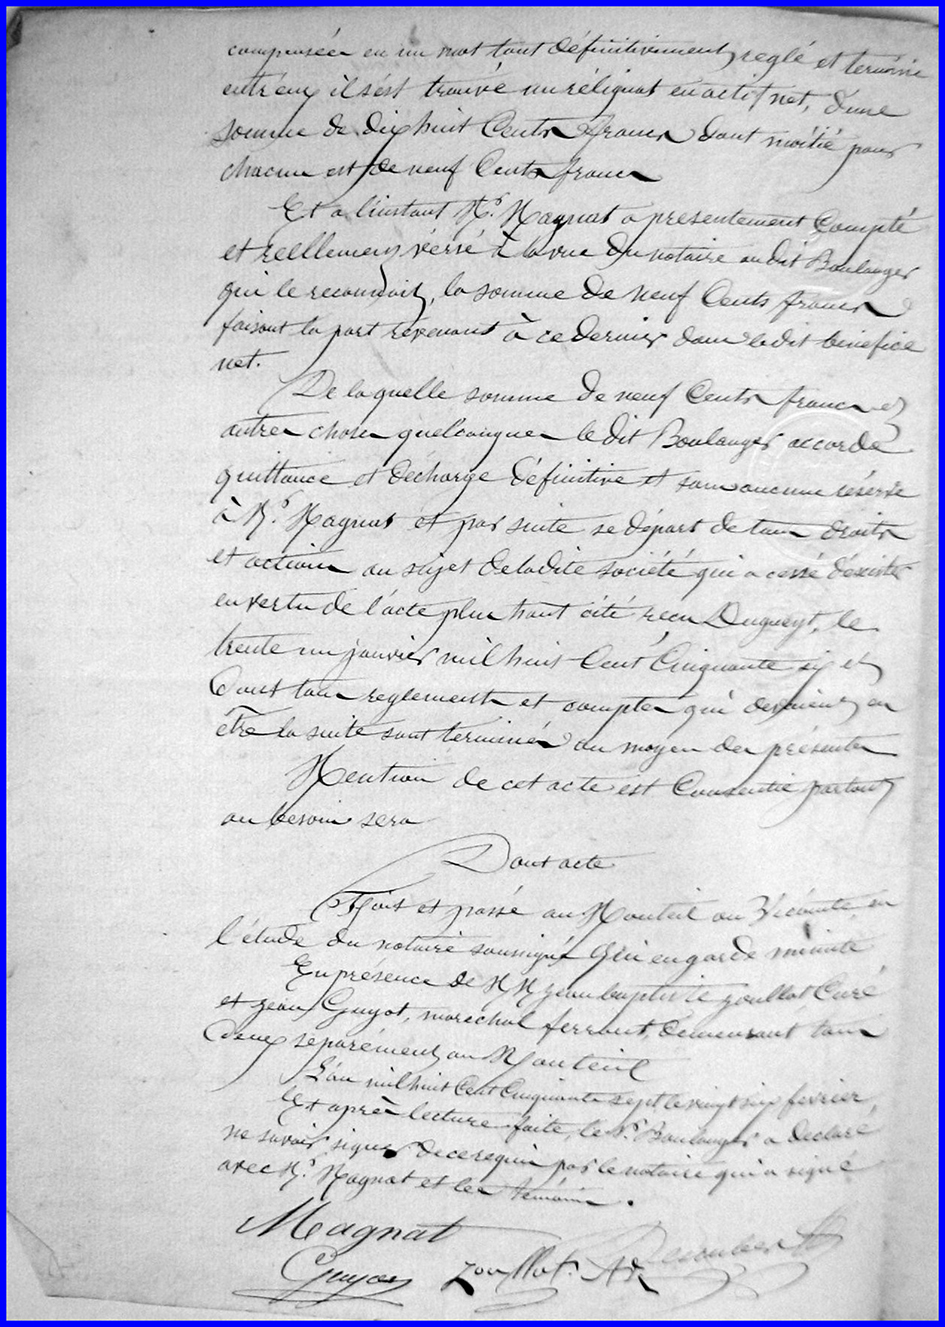 compensées en un mot tout définitivement reglé et terminé
entr'eux il s'est trouvé un réliquat en actif net, d'une
somme de dix huit Cents francs dont moitié pour
chacun est de neuf Cents francs
Et a l'instant Mr. Magnat a presentement Compté
et reelllement versé à la vue du notaire au dit Boulanger
qui le reconnait, la somme de neuf Cents francs
faisant la part revenant à ce dernier dans le dit bénéfice
net.
De laquelle somme de neuf Cents francs et
autres choses quelconques le dit Boulanger accorde
quittance et décharge définitive et sans aucune réserve
à Mr. Magnat et par suite se départ de tous droits
et actions au sujet de la dite société qui a cessé d'exister
en vertu de l'acte plus haut cité reçu Dugueyt, le
trente un janvier mil huit Cent Cinquante six et
dont tous reglements et comptes qui devaient en
être la suite sont terminés au moyen des présentes
Mention de cet acte est Consentie partout
ou besoin sera
Dont acte
Fait et passé au Monteil au Vicomte en
l'étude du notaire soussigné qui en garde minute
En présence de MM jean baptiste zoullot Curé
et jean Guyot, maréchal ferrant, demeurant tous
deux séparément au Monteil
L'an mil huit Cent Cinquante sept le vingt six fevrier
Et après lecture faite, le Sr. Boulanger a declaré
ne savoir signer de ce requis par le notaire qui a signé
avec Mr. Magnat et les témoins.
Magnat
Guyot zoullot